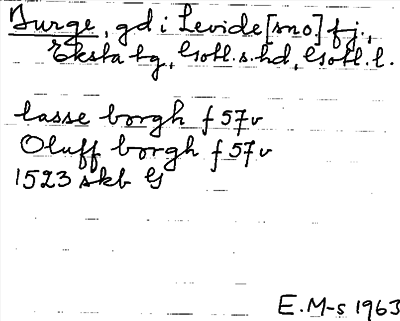 Burge, gd i Levide [sno] fj.,
Eksta tg, Gotl. s. hd, Gotl. l.
lasse borgh f 57v
Oluff borgh f 57v
1523 skb G
E. M-s 1963